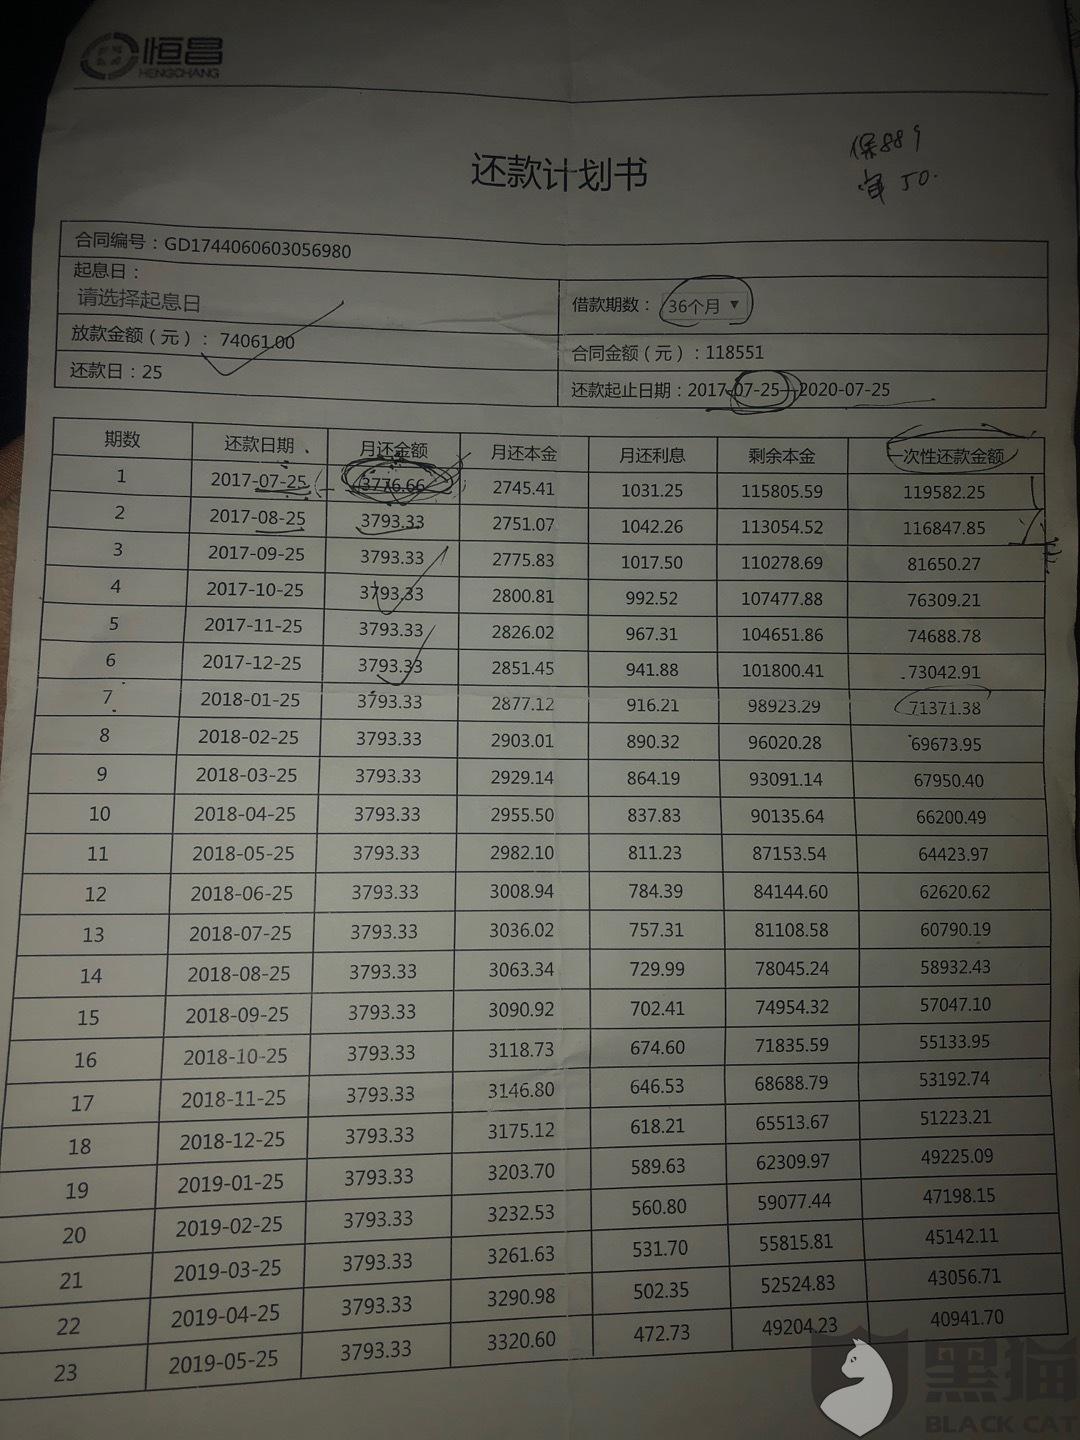 恒昌
HENGCHANG
保889
审 50.
还款计划书
合同编号：GD1744060603056980
起息日：
请选择起息日
借款期数： 36个月 ▼
放款金额（元）： 74061.00
合同金额（元）：118551
还款日：25
还款起止日期：2017-07-25—2020-07-25
期数 还款日期 月还金额 月还本金 月还利息 剩余本金 一次性还款金额
1 2017-07-25 3776.66 2745.41 1031.25 115805.59 119582.25
2 2017-08-25 3793.33 2751.07 1042.26 113054.52 116847.85
3 2017-09-25 3793.33 2775.83 1017.50 110278.69 81650.27
4 2017-10-25 3793.33 2800.81 992.52 107477.88 76309.21
5 2017-11-25 3793.33 2826.02 967.31 104651.86 74688.78
6 2017-12-25 3793.33 2851.45 941.88 101800.41 73042.91
7 2018-01-25 3793.33 2877.12 916.21 98923.29 71371.38
8 2018-02-25 3793.33 2903.01 890.32 96020.28 69673.95
9 2018-03-25 3793.33 2929.14 864.19 93091.14 67950.40
10 2018-04-25 3793.33 2955.50 837.83 90135.64 66200.49
11 2018-05-25 3793.33 2982.10 811.23 87153.54 64423.97
12 2018-06-25 3793.33 3008.94 784.39 84144.60 62620.62
13 2018-07-25 3793.33 3036.02 757.31 81108.58 60790.19
14 2018-08-25 3793.33 3063.34 729.99 78045.24 58932.43
15 2018-09-25 3793.33 3090.92 702.41 74954.32 57047.10
16 2018-10-25 3793.33 3118.73 674.60 71835.59 55133.95
17 2018-11-25 3793.33 3146.80 646.53 68688.79 53192.74
18 2018-12-25 3793.33 3175.12 618.21 65513.67 51223.21
19 2019-01-25 3793.33 3203.70 589.63 62309.97 49225.09
20 2019-02-25 3793.33 3232.53 560.80 59077.44 47198.15
21 2019-03-25 3793.33 3261.63 531.70 55815.81 45142.11
22 2019-04-25 3793.33 3290.98 502.35 52524.83 43056.71
23 2019-05-25 3793.33 3320.60 472.73 49204.23 40941.70
黑猫
BLACK CAT